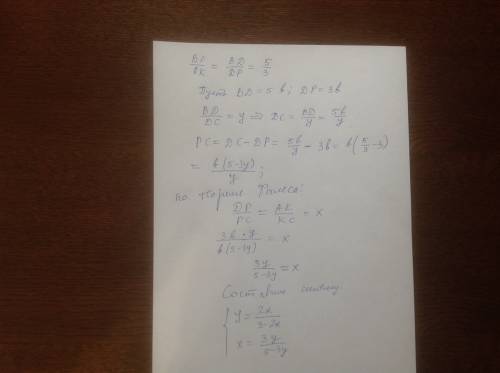 BP/PK = BD/DP = 5/3
Пусть BD = 5b; DP = 3b
BD/DC = y ⇒ DC = BD/y = 5b/y
PC = DC - DP = 5b/y - 3b = b(5/y - 3)
= b(5-3y)/y;
по теореме Фалеса:
DP/PC = AK/KC = x
3b·y/b(5-3y) = x
3y/5-3y = x
Составим систему:
{ y = 2x/3-2x
x = 3y/5-3y